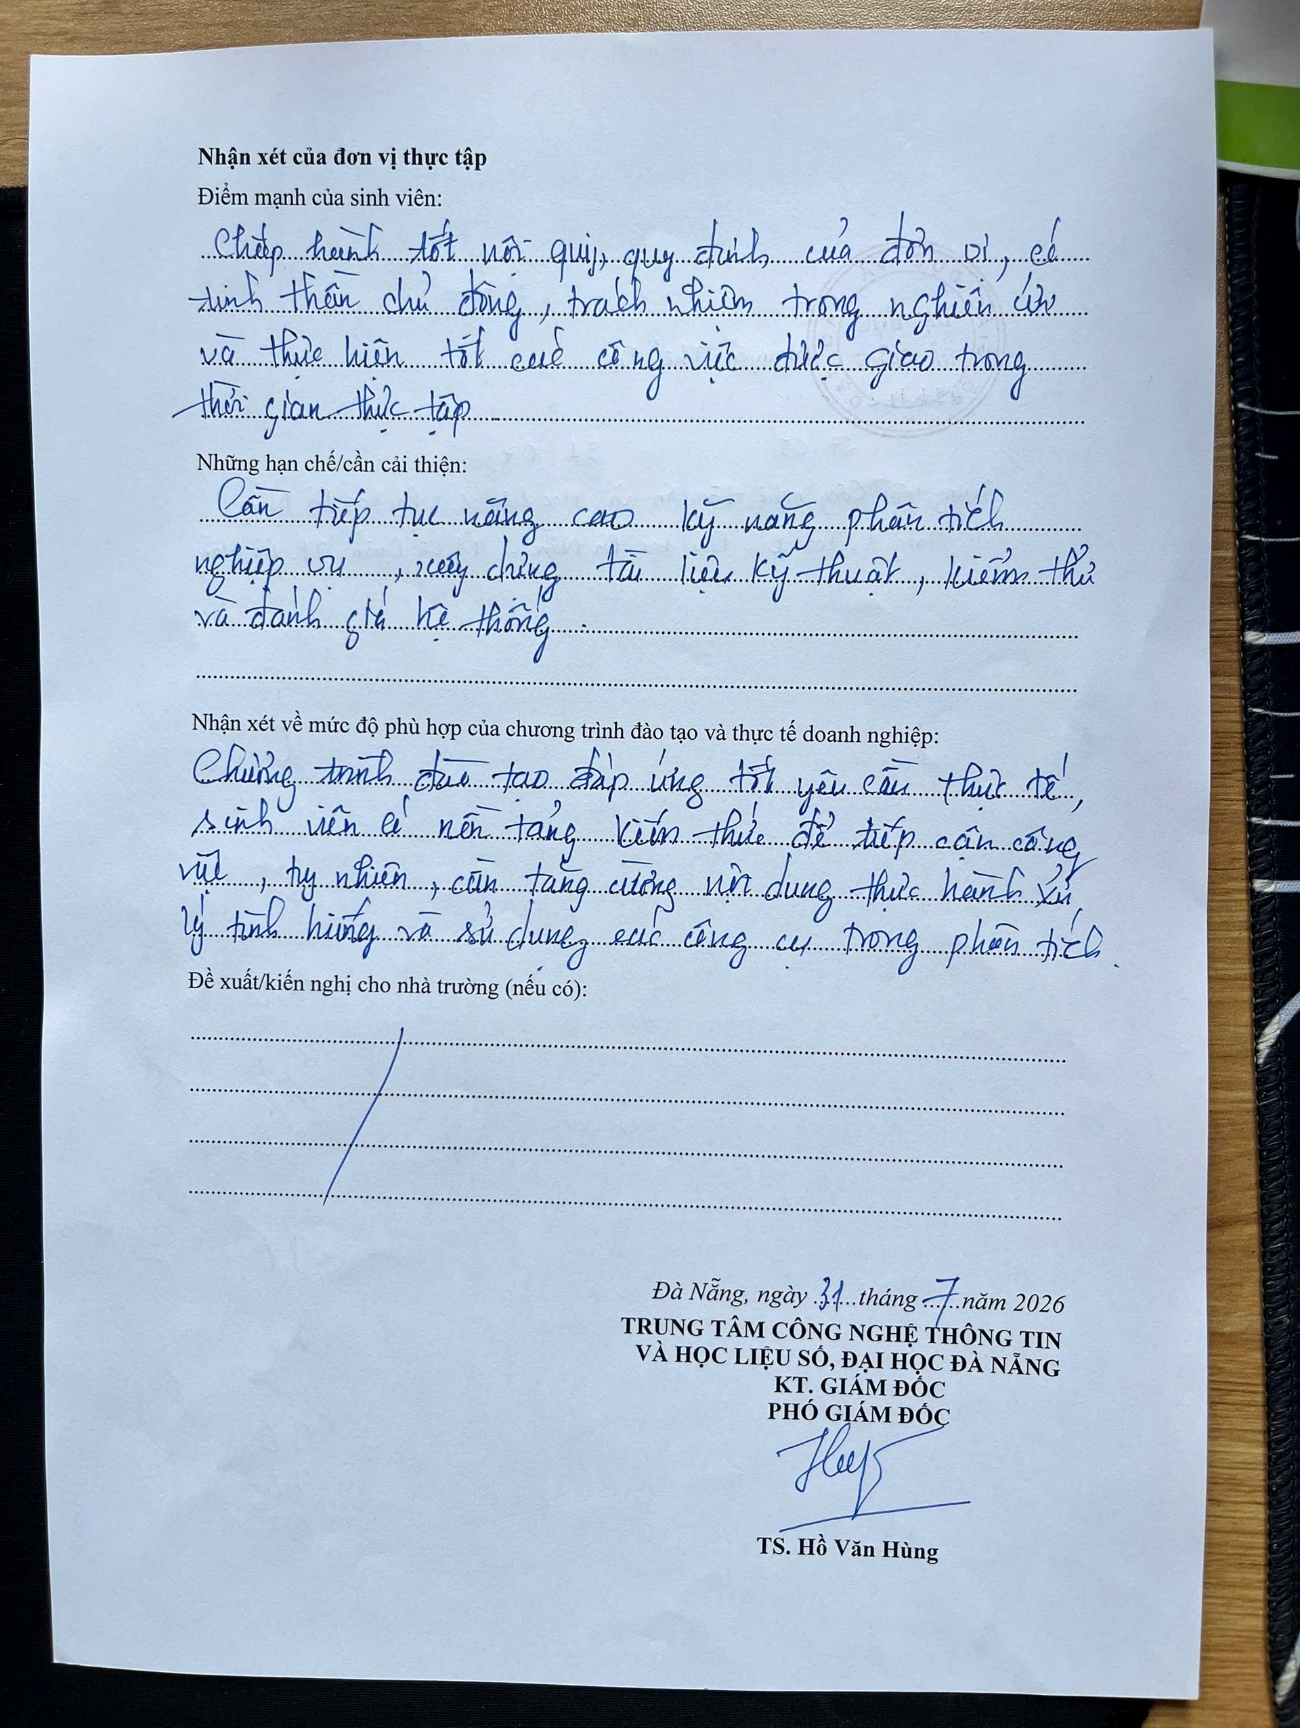 Nhận xét của đơn vị thực tập
Điểm mạnh của sinh viên:
Chấp hành tốt nội quy, quy định của đơn vị, có
tinh thần chủ động, trách nhiệm trong nghiên cứu
và thực hiện tốt các công việc được giao trong
thời gian thực tập
Những hạn chế/cần cải thiện:
Cần tiếp tục nâng cao kỹ năng phân tích
nghiệp vụ, xây dựng tài liệu kỹ thuật, kiểm thử
và đánh giá hệ thống.
Nhận xét về mức độ phù hợp của chương trình đào tạo và thực tế doanh nghiệp:
Chương trình đào tạo đáp ứng tốt yêu cầu thực tế,
sinh viên có nền tảng kiến thức để tiếp cận công
việc, tuy nhiên, cần tăng cường nội dung thực hành xử
lý tình huống và sử dụng các công cụ trong phân tích.
Đề xuất/kiến nghị cho nhà trường (nếu có):
Đà Nẵng, ngày 31 tháng 7 năm 2026
TRUNG TÂM CÔNG NGHỆ THÔNG TIN
VÀ HỌC LIỆU SỐ, ĐẠI HỌC ĐÀ NẴNG
KT. GIÁM ĐỐC
PHÓ GIÁM ĐỐC
TS. Hồ Văn Hùng